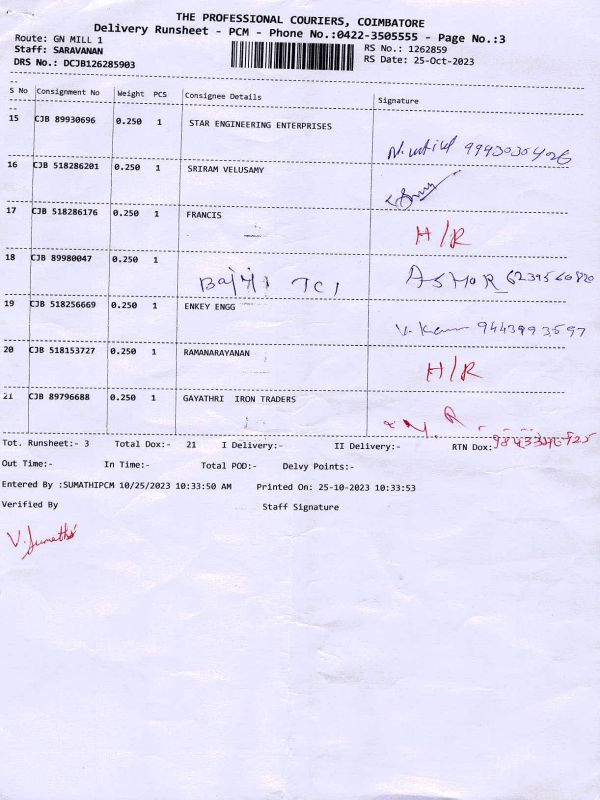 THE PROFESSIONAL COURIERS, COIMBATORE
Delivery Runsheet - PCM - Phone No.:0422-3505555 - Page No.:3
Route: GN MILL 1 RS No.: 1262859
Staff: SARAVANAN RS Date: 25-Oct-2023
DRS No.: DCJB126285903
S No Consignment No Weight PCS Consignee Details Signature
15 CJB 89930696 0.250 1 STAR ENGINEERING ENTERPRISES
16 CJB 518286201 0.250 1 SRIRAM VELUSAMY
17 CJB 518286176 0.250 1 FRANCIS H/R
18 CJB 89980047 0.250 1 Bajiji TCI ASHOR 6239560820
19 CJB 518256669 0.250 1 ENKEY ENGG V. 9443993597
20 CJB 518153727 0.250 1 RAMANARAYANAN H/R
21 CJB 89796688 0.250 1 GAYATHRI IRON TRADERS
Tot. Runsheet:- 3 Total Dox:- 21 I Delivery:- II Delivery:- RTN Dox:-
Out Time:- In Time:- Total POD:- Delvy Points:-
Entered By :SUMATHIPCM 10/25/2023 10:33:50 AM Printed On: 25-10-2023 10:33:53
Verified By Staff Signature
V. Sumathi